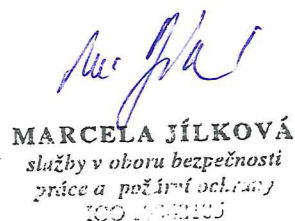 MARCELA JÍLKOVÁ
služby v oboru bezpečnosti
práce a požární ochrany
IČO